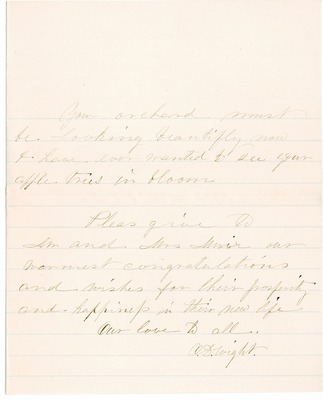 Your orchard must
be looking beautifly now
I have ever wanted to see your
apple trees in bloom
Pleas give to
Mr and Mrs Muir our
warmest congratulations
and wishes for their prosperity
and happiness in their new life
Our love to all..
Wright.